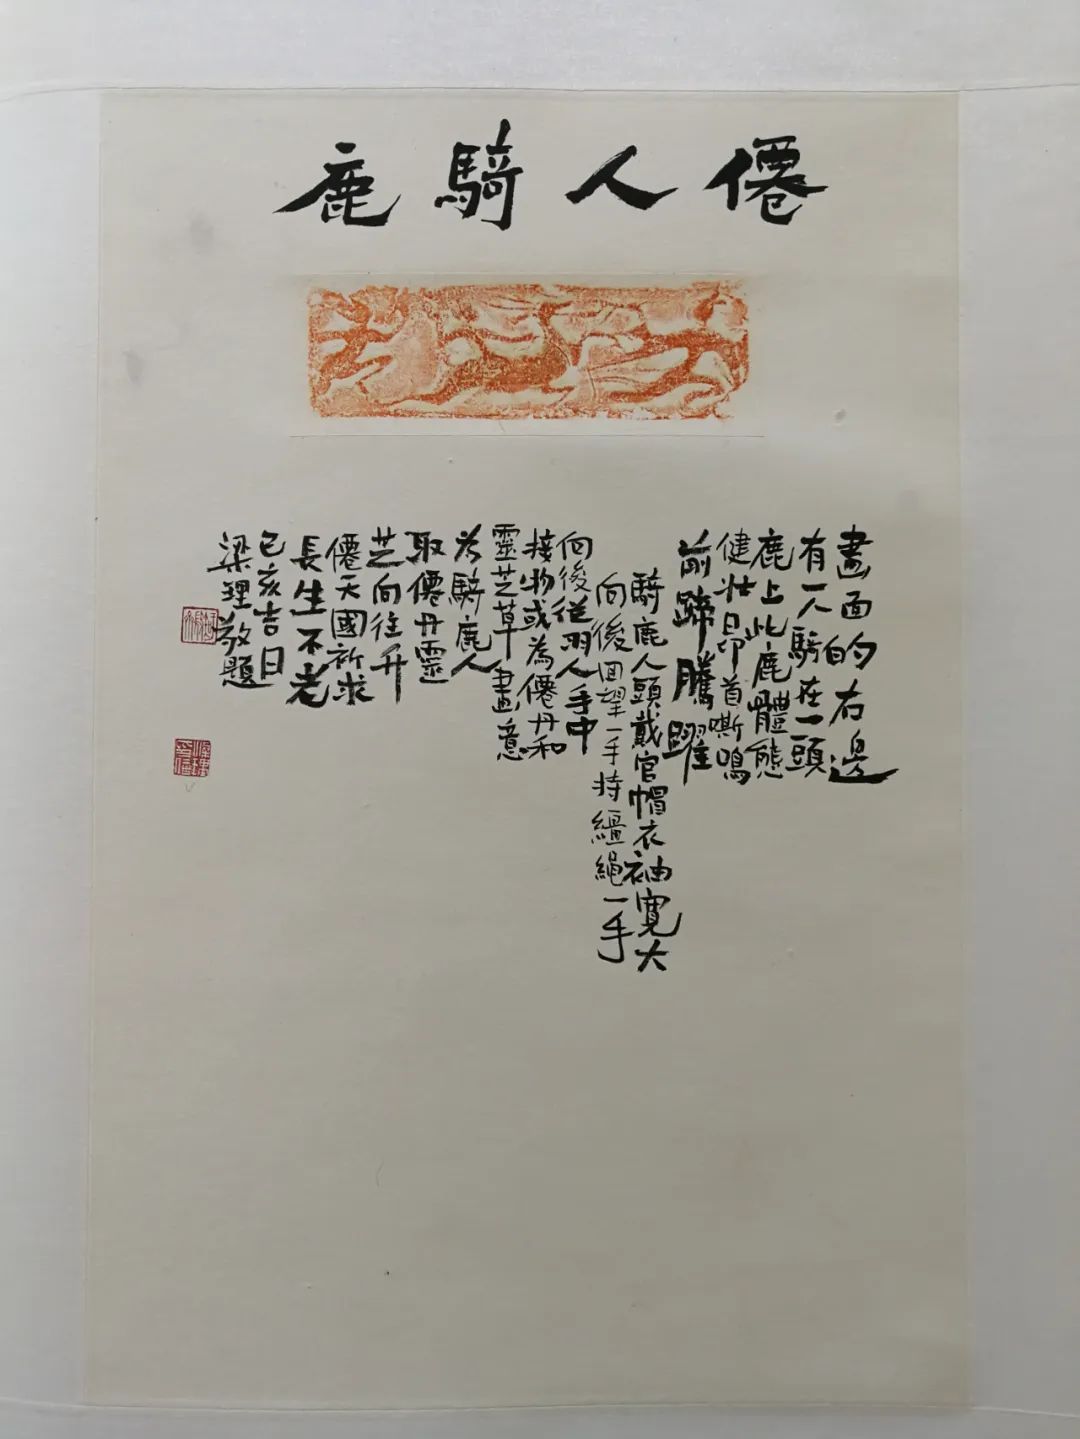 僊人騎鹿
畫面的右邊
有一人騎在一頭
鹿上此鹿體態
健壯昂首嘶鳴
前蹄騰躍
騎鹿人頭戴官帽衣袖寬大
向後回望一手持繮繩一手
向後從羽人手中
接物或為僊丹和
靈芝草畫意
为騎鹿人
取僊丹靈
芝向往升
僊天國祈求
長生不老
己亥吉日
梁理敬題